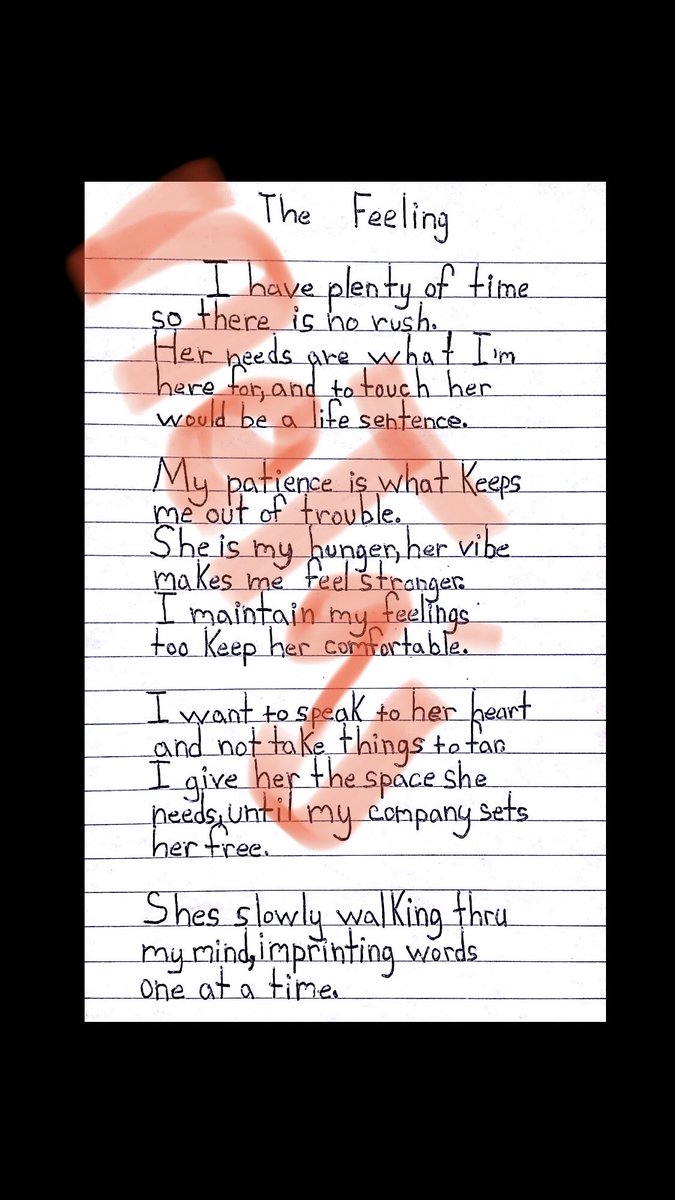 The Feeling
I have plenty of time
so there is no rush.
Her needs are what I'm
here for, and to touch her
would be a life sentence.
My patience is what keeps
me out of trouble.
She is my hunger, her vibe
makes me feel stronger.
I maintain my feelings
too keep her comfortable.
I want to speak to her heart
and not take things to far.
I give her the space she
needs, until my company sets
her free.
Shes slowly walking thru
my mind, imprinting words
one at a time.